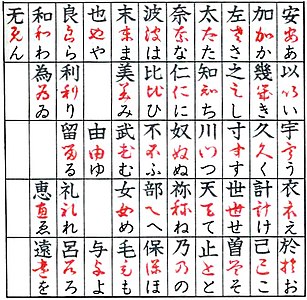 安ああ 以いい 宇うう 衣ええ 於おお
加かか 幾きき 久くく 計けけ 己ここ
左ささ 之しし 寸すす 世せせ 曽そそ
太たた 知ちち 川つつ 天てて 止とと
奈なな 仁にに 奴ぬぬ 祢ねね 乃のの
波はは 比ひひ 不ふふ 部へへ 保ほほ
末まま 美みみ 武むむ 女めめ 毛もも
也やや 由ゆゆ 与よよ
良らら 利りり 留るる 礼れれ 呂ろろ
和わわ 為ゐゐ 恵ゑゑ 遠をを
无んん